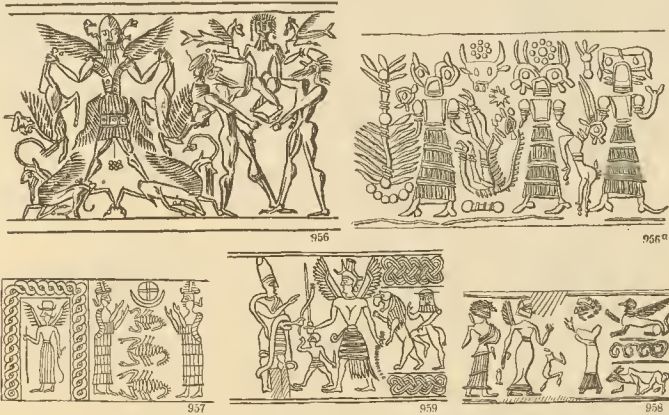 956
956a
957
959
958